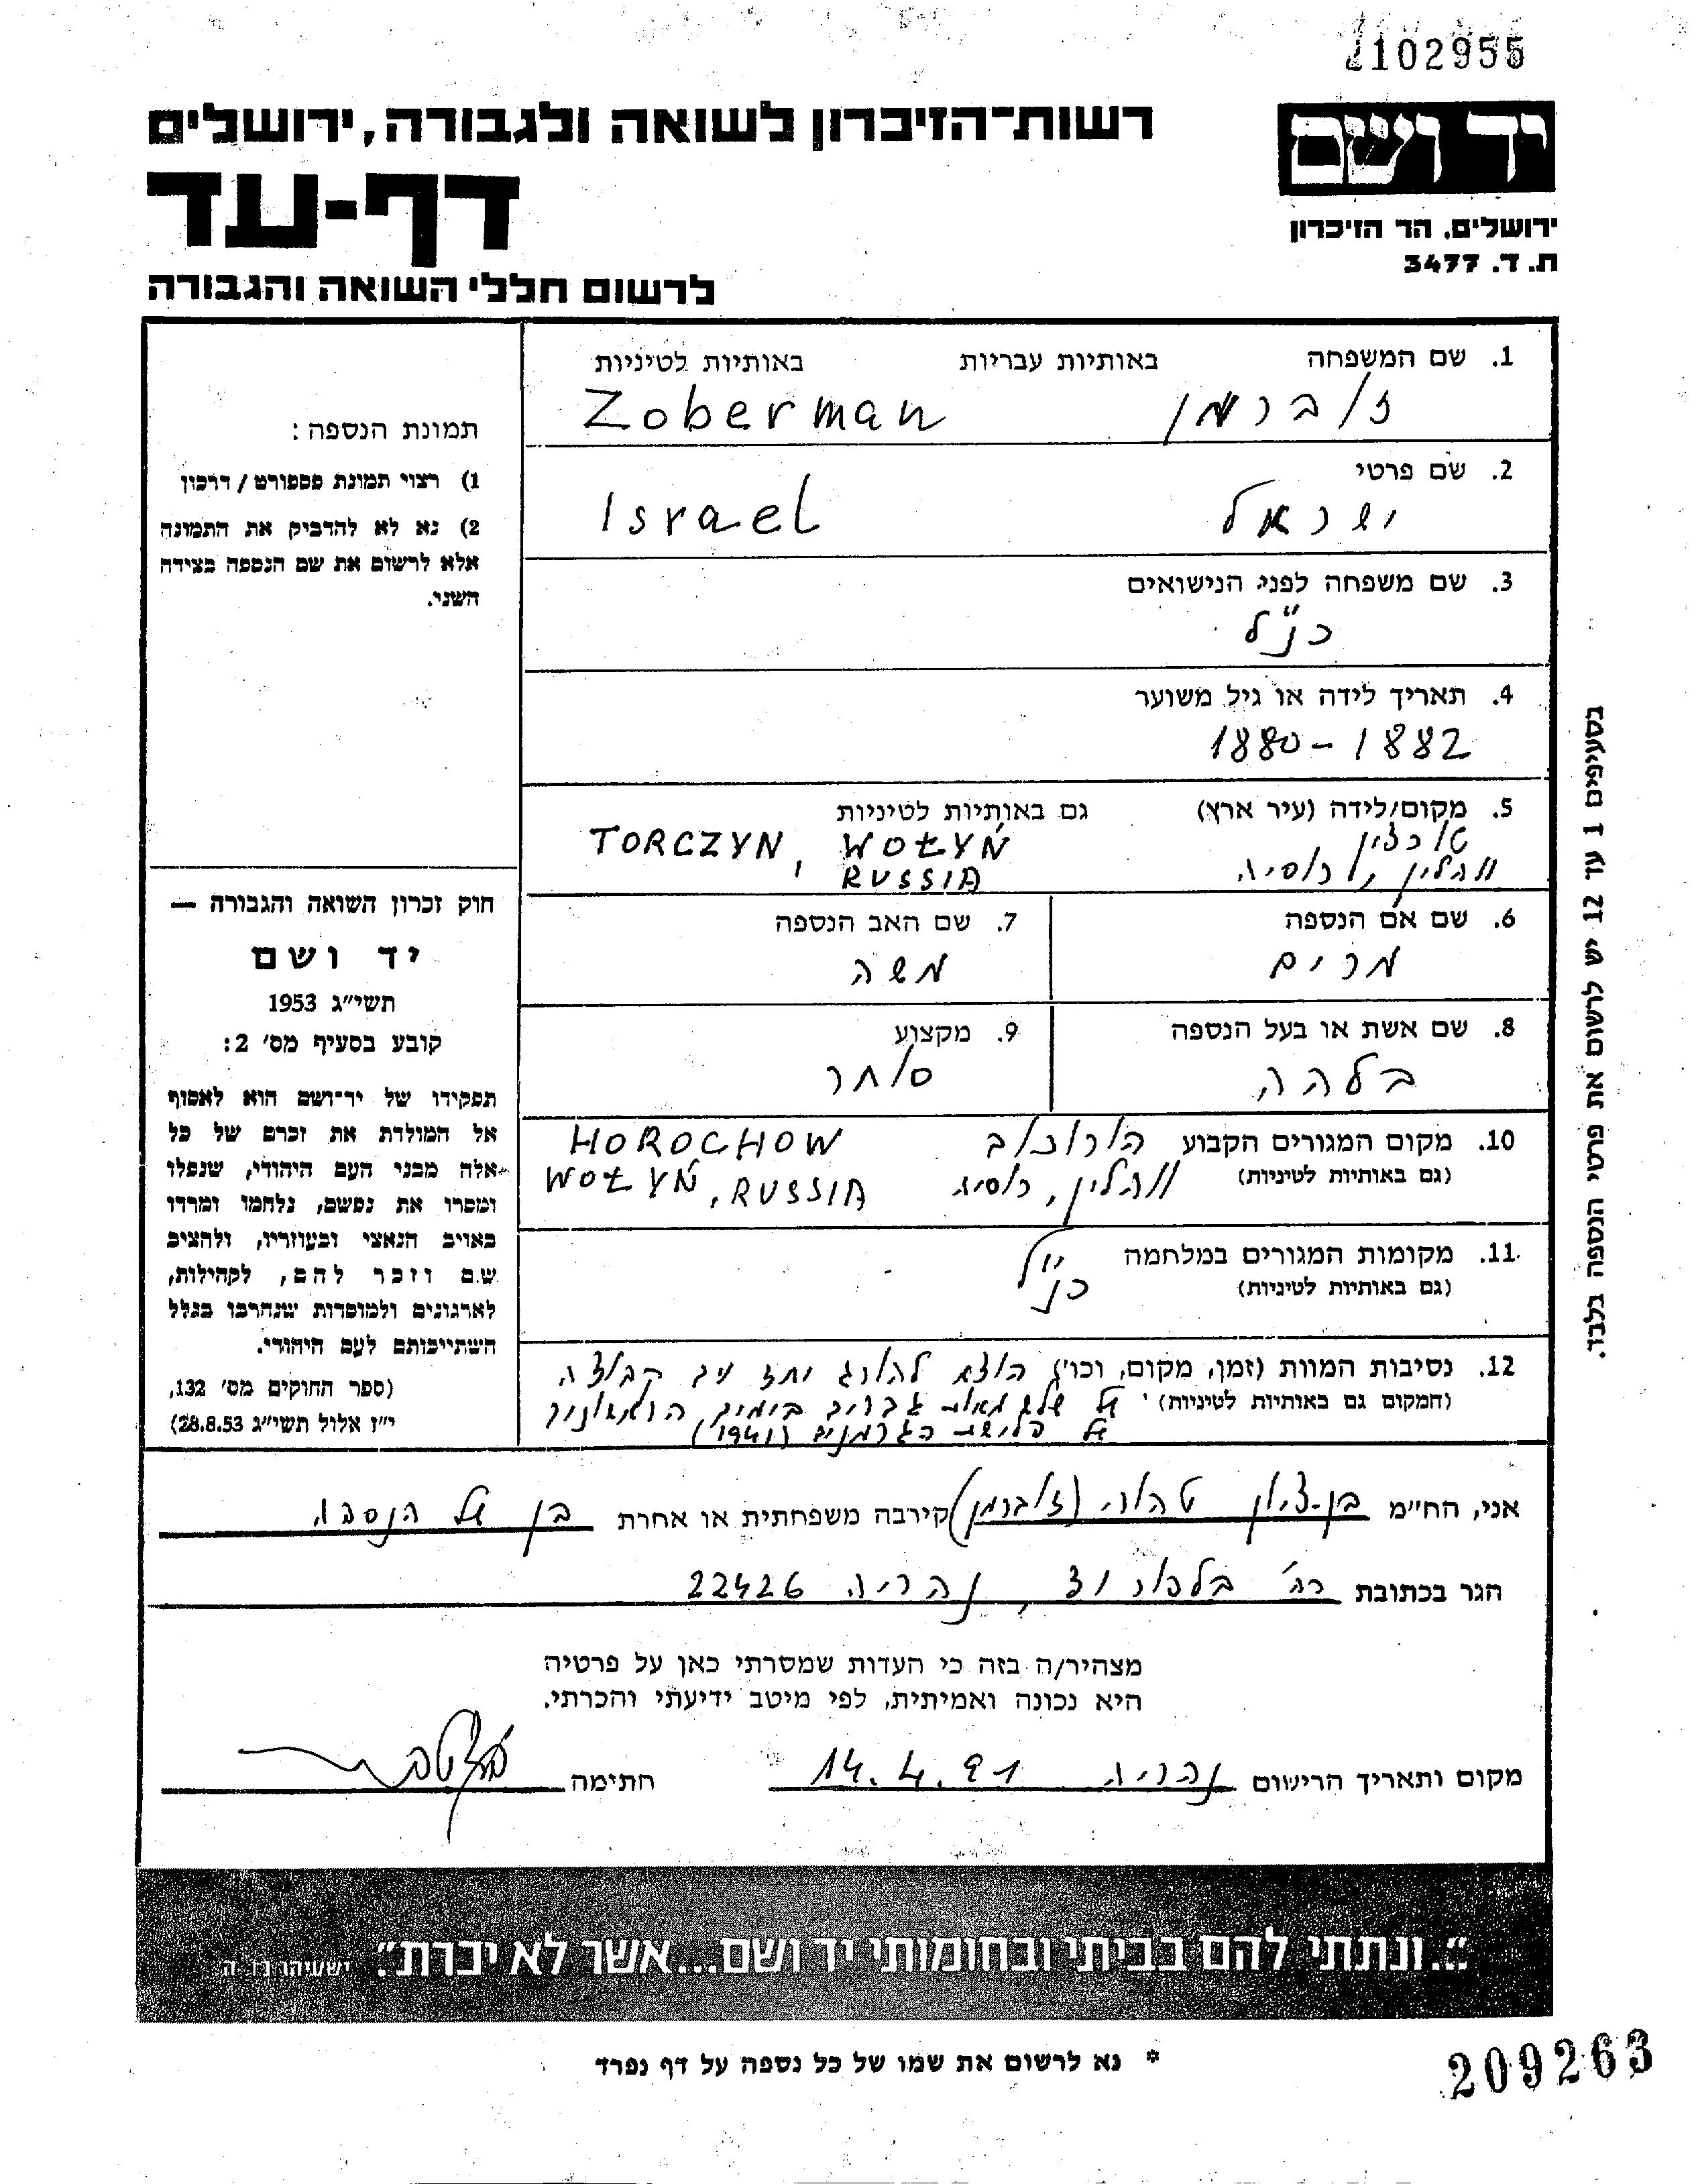 2102955
רשות־הזיכרון לשואה ולגבורה, ירושלים
יד ושם
דף-עד
ירושלים, הר הזיכרון
ת. ד. 3477
לרשום חללי השואה והגבורה
1. שם המשפחה באותיות עבריות באותיות לטיניות
זוברמן Zoberman
2. שם פרטי
ישראל Israel
3. שם משפחה לפני הנישואים
כנ"ל
4. תאריך לידה או גיל משוער
1880-1882
5. מקום לידה (עיר ארץ) גם באותיות לטיניות
טורצ'ין TORCZYN, WOŁYŃ
ווהלין, רוסיה RUSSIA
6. שם אם הנספה 7. שם האב הנספה
מרים משה
8. שם אשת או בעל הנספה 9. מקצוע
בלהה סוחר
10. מקום המגורים הקבוע הורוכוב HOROCHOW
(גם באותיות לטיניות) ווהלין, רוסיה WOŁYŃ, RUSSIA
11. מקומות המגורים במלחמה כנ"ל
(גם באותיות לטיניות)
12. נסיבות המוות (זמן, מקום, וכו') הוצא להורג יחד עם קבוצה
(המקום גם באותיות לטיניות) של שלש מאות גברים בימים הראשונים
של פלישת הגרמנים (1941)
תמונת הנספה:
1) רצוי תמונת פספורט / דרכון
2) נא לא להדביק את התמונה
אלא לרשום את שם הנספה בצידה
השני.
חוק זכרון השואה והגבורה —
יד ושם
תשי"ג 1953
קובע בסעיף מס' 2:
תפקידו של יד־ושם הוא לאסוף
אל המולדת את זכרם של כל
אלה מבני העם היהודי, שנפלו
ומסרו את נפשם, נלחמו ומרדו
באויב הנאצי ובעוזריו, ולהציב
שם וזכר להם, לקהילות,
לארגונים ולמוסדות שנחרבו בגלל
השתייכותם לעם היהודי.
(ספר החוקים מס' 132,
י"ז אלול תשי"ג 28.8.53)
בסעיפים 1 עד 12 יש לרשום את פרטי הנספה בלבד.
אני, הח"מ בן-ציון (זוברמן) קירבה משפחתית או אחרת בן של הנספה
הגר בכתובת רח' בלפור נהריה 22426
מצהיר/ה בזה כי העדות שמסרתי כאן על פרטיה
היא נכונה ואמיתית, לפי מיטב ידיעתי והכרתי.
מקום ותאריך הרישום נהריה 14.4.91 חתימה
"..ונתתי להם בביתי ובחומותי יד ושם...אשר לא יכרת". ישעיהו נו, ה
* נא לרשום את שמו של כל נספה על דף נפרד
209263